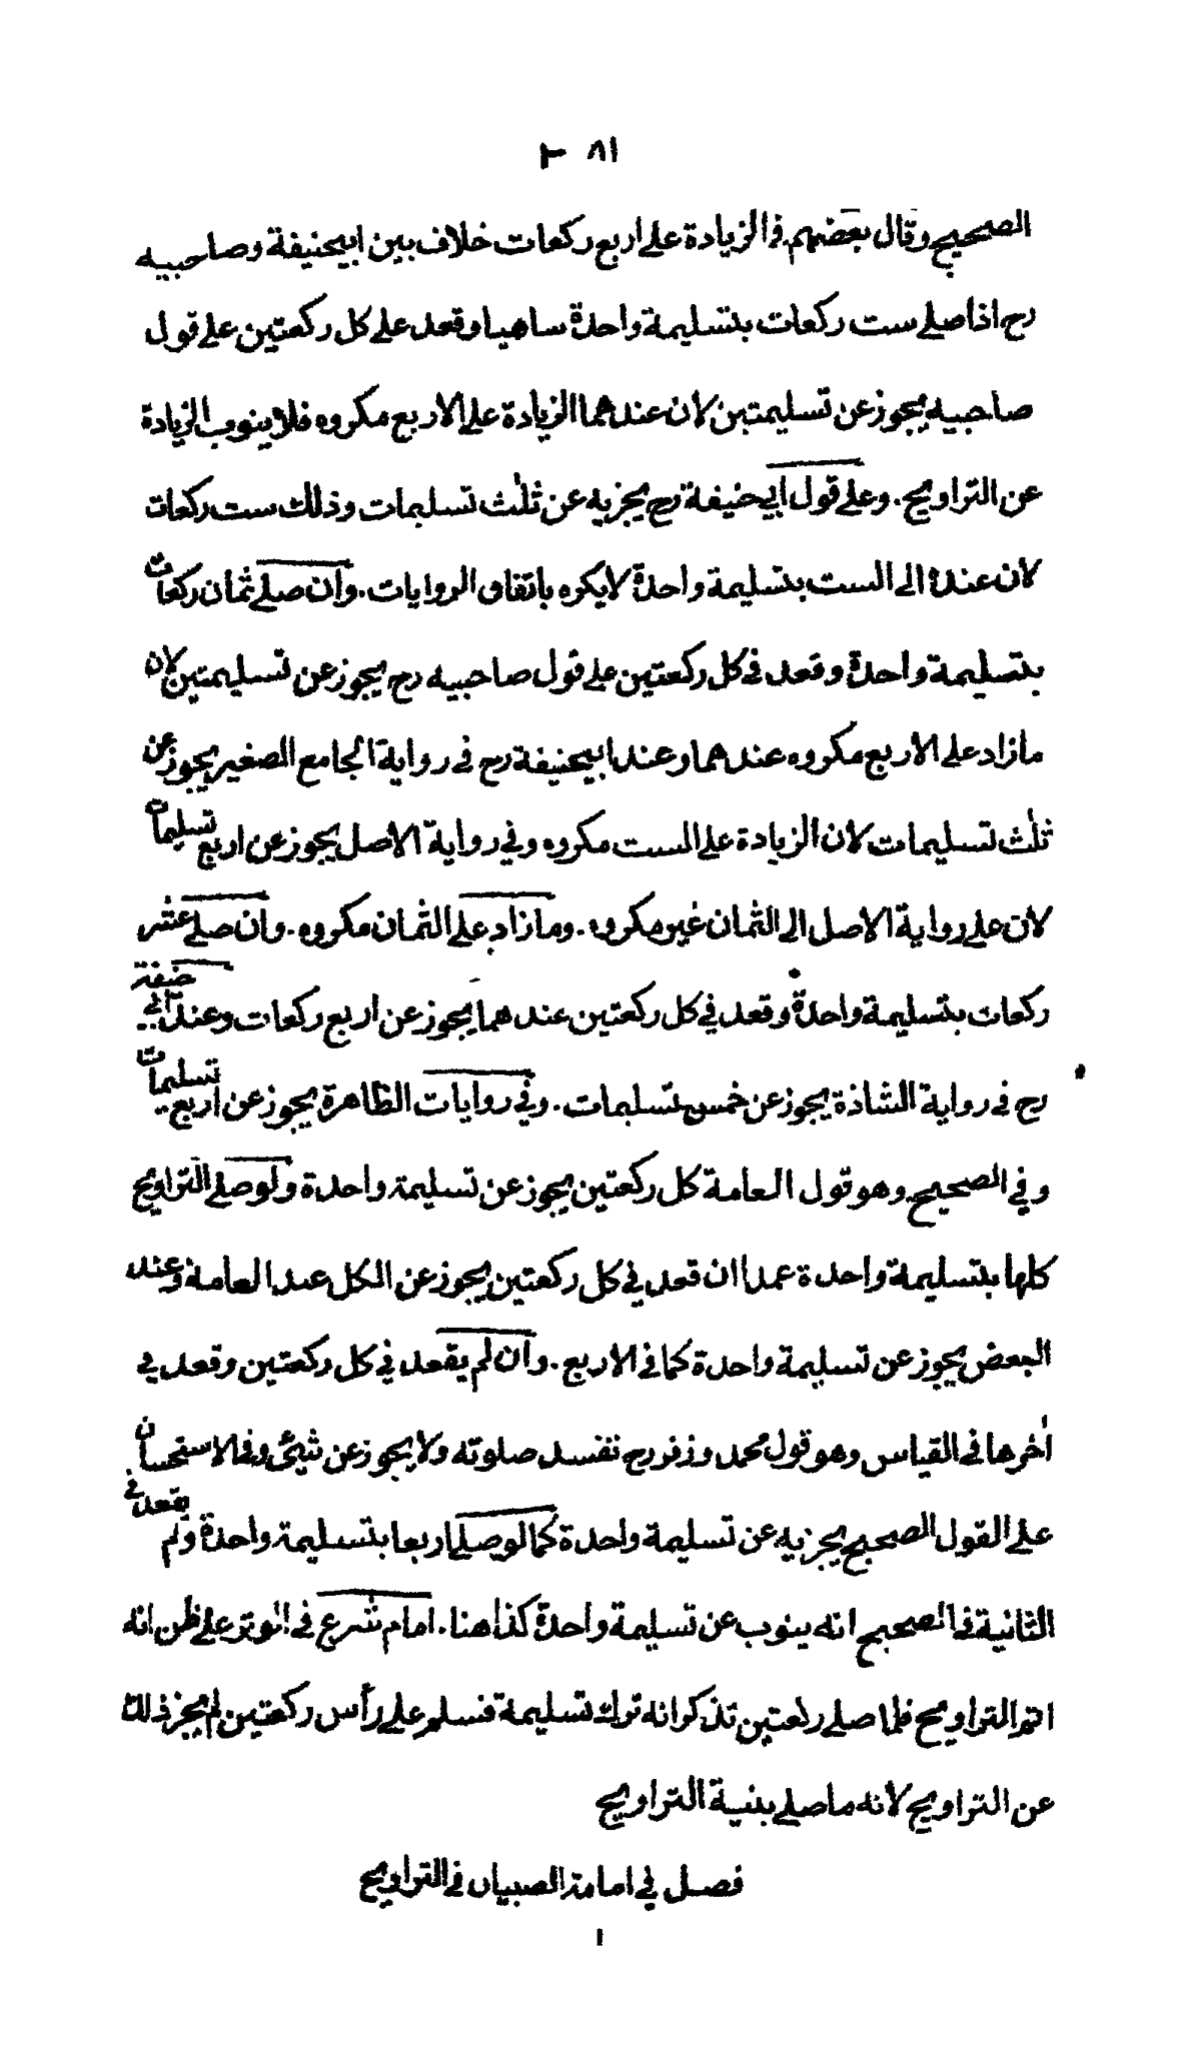 ٢٨١
الصحيح وقال بعضهم في الزيادة على اربع ركعات خلاف بين ابيحنيفة وصاحبيه
رح اذا صلے ست ركعات بتسليمة واحدة ساهيا وقعد على كل ركعتين على قول
صاحبيه يجوز عن تسليمتين لان عندهما الزيادة على الاربع مكروه فلا ينوب الزيادة
عن التراويح. وعلى قول ابي حنيفة رح يجزيه عن ثلٰث تسليمات وذلك ست ركعات
لان عنده الى الست بتسليمة واحدة لا يكره باتفاق الروايات. وان صلے ثمان ركعات
بتسليمة واحدة وقعد في كل ركعتين على قول صاحبيه رح يجوز عن تسليمتين لان
ما زاد على الاربع مكروه عندهما وعند ابيحنيفة رح في رواية الجامع الصغير يجوز عن
ثلٰث تسليمات لان الزيادة على الست مكروه وفي رواية الاصل يجوز عن اربع تسليمات
لان على رواية الاصل الى الثمان غير مكروه. وما زاد على الثمان مكروه. وان صلے عشر
ركعات بتسليمة واحدة وقعد في كل ركعتين عندهما يجوز عن اربع ركعات وعند ابي حنيفة
رح في رواية الشاذة يجوز عن خمس تسليمات. وفي روايات الظاهرة يجوز عن اربع تسليمات
وفي الصحيح وهو قول العامة كل ركعتين يجوز عن تسليمة واحدة ولو صلے التراويح
كلها بتسليمة واحدة عمدا ان قعد في كل ركعتين يجوز عن الكل عند العامة وعند
البعض يجوز عن تسليمة واحدة كما في الاربع. وان لم يقعد في كل ركعتين وقعد في
اٰخرها في القياس وهو قول محمد وزفر رح تفسد صلوته ولا يجوز عن شيئ وفي الاستحسان
على القول الصحيح يجزيه عن تسليمة واحدة كما لو صلے اربعا بتسليمة واحدة ولم يقعد في
الثانية في الصحيح انه ينوب عن تسليمة واحدة كذا هنا. امام شرع في الوتر على ظن انه
اتم التراويح فلما صلے ركعتين تذكر انه ترك تسليمة فسلم على رأس ركعتين لم يجز ذلك
عن التراويح لانه ما صلے بنية التراويح
فصل في امامة الصبيان في التراويح
١